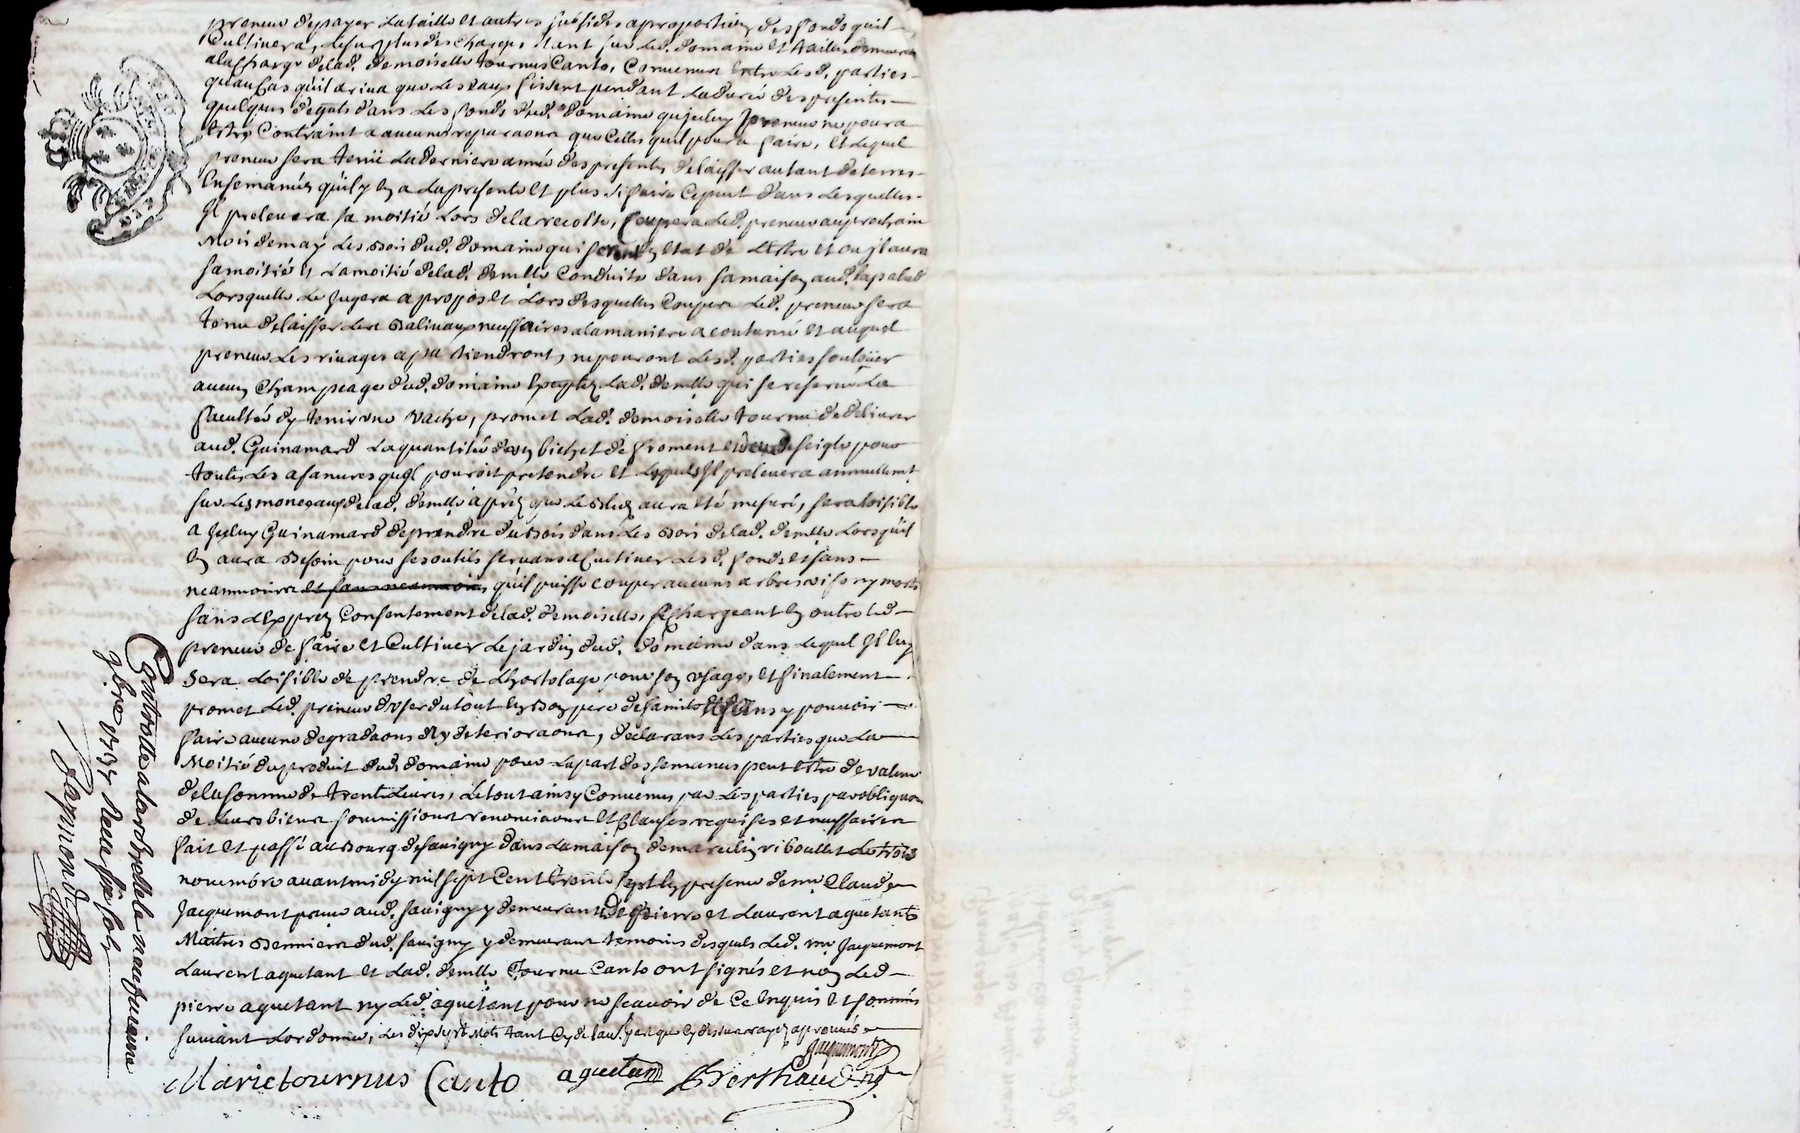 preneur de payer la taille et autres subsides a proportion des fonds quil
Cultivera, le surplus des charges etant sur led. domaine et tailles demeurera
a la charge de lad. demoiselle tournus Canto, Convenu entre les d. parties
quau Cas quil ariva que les eaux fissent pendant la durée des presentes
quelques degats dans les fonds dud. domaine qu jceluy preneur ne poura
Estre Contraint a aucunes reparaons que Celles quil poura faire, et lequel
preneur sera tenü la derniere année des presentes de laisser autant de terres
Ensemancés quil y en a la presente et plus si faire Ce peut dans lesquelles
Il prelevera sa moitié lors de la recolte, Coupera led. preneur au prochain
Mois de may les bois dud. domaine qui seront en Etat de L'estre et ou jl aura
sa moitié et la moitié de lad. demlle Conduite dans sa maison aud.
Lorsquelle le jugera a propos et lors desquelles Coupes led. preneur sera
tenu de laisser les balivaux neussaires a la maniere acoutumé et auquel
preneur les rivages apartiendront, ne pouront les d. parties
aucun Champeage dud. domaine Excepté lad. demlle qui se reserve la
faculté dy tenir une vache, promet lad. demoiselle tournu de delivrer
aud. Guinamard la quantité dun bichet de froment et deux de seigle pour
toutes les afanures quil pouroit pretendre et lesquels jl prelevera annuellemt
sur les monceaux de lad. demlle aprez que le bled aura eté mesuré, sera loisible
a jceluy Guinamard de prendre du bois dans les bois de lad. demlle lorsquil
En aura besoin pour ses outils servans a Cultiver les d. fonds et sans
neanmoins et sans neanmoins quil puisse couper aucuns arbres vifs ny morts
sans lExprez Consentement de lad. demoiselle, se Chargeant en outre led
preneur de faire et Cultiver le jardin dud. domaine dans lequel jl luy
sera loisible de prendre de Lhortolage pour son usage, et finalement
promet led. preneur duser du tout en bon pere de famile et sans y pouvoir
faire aucune degradaons ny deterioraons, declarans les parties que la
Moitié du produit dud. domaine pour la part des semances peut estre de valeur
de la somme de trente Livres, le tout ainsy Convenu par les parties par obligaon
de leurs biens soumissions renonciaons et Clauses requises et neussaires
fait et passé au bourg de savigny dans la maison de riboullet le trois
novembre avant midy mil sept Cent trente sept En presence de mre Claude
Jacquemont preneur aud. savigny y demeurant et de Pierre et Laurent aguetant
Maitres dud. savigny y demeurant temoins desquels led. mre Jacquemont
Laurent aguetant et lad. demlle Tournu Canto ont signés et non led
pierre aguetant ny led. aguetant pour ne scavoir de Ce Enquis et sommés
suivant Lordonnce, les dix sept mots tant Cy de que Cy dessus rayez aprouvés
Jacquemont
Marie tournus Canto aguetant Berthaud
Controllé a larbrelle le neufuieme
9bre 1737 Reca six sols
Raymond